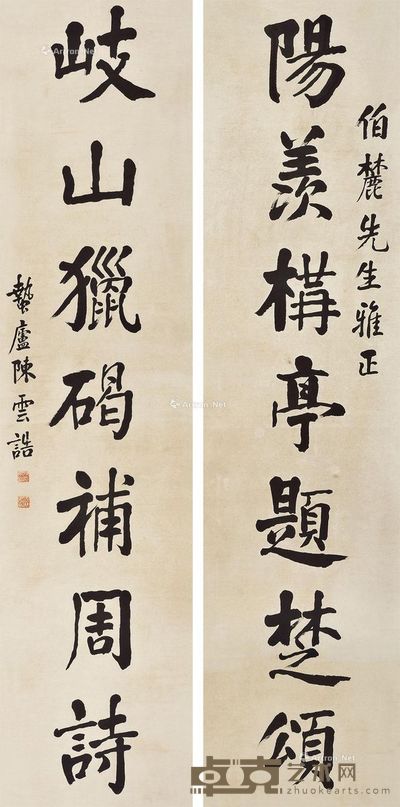 陽羨構亭題楚頌
伯麓先生雅正
岐山獵碣補周詩
蟄廬陳雲誥
Artron.Net
卓克艺术网
www.zhuokearts.com